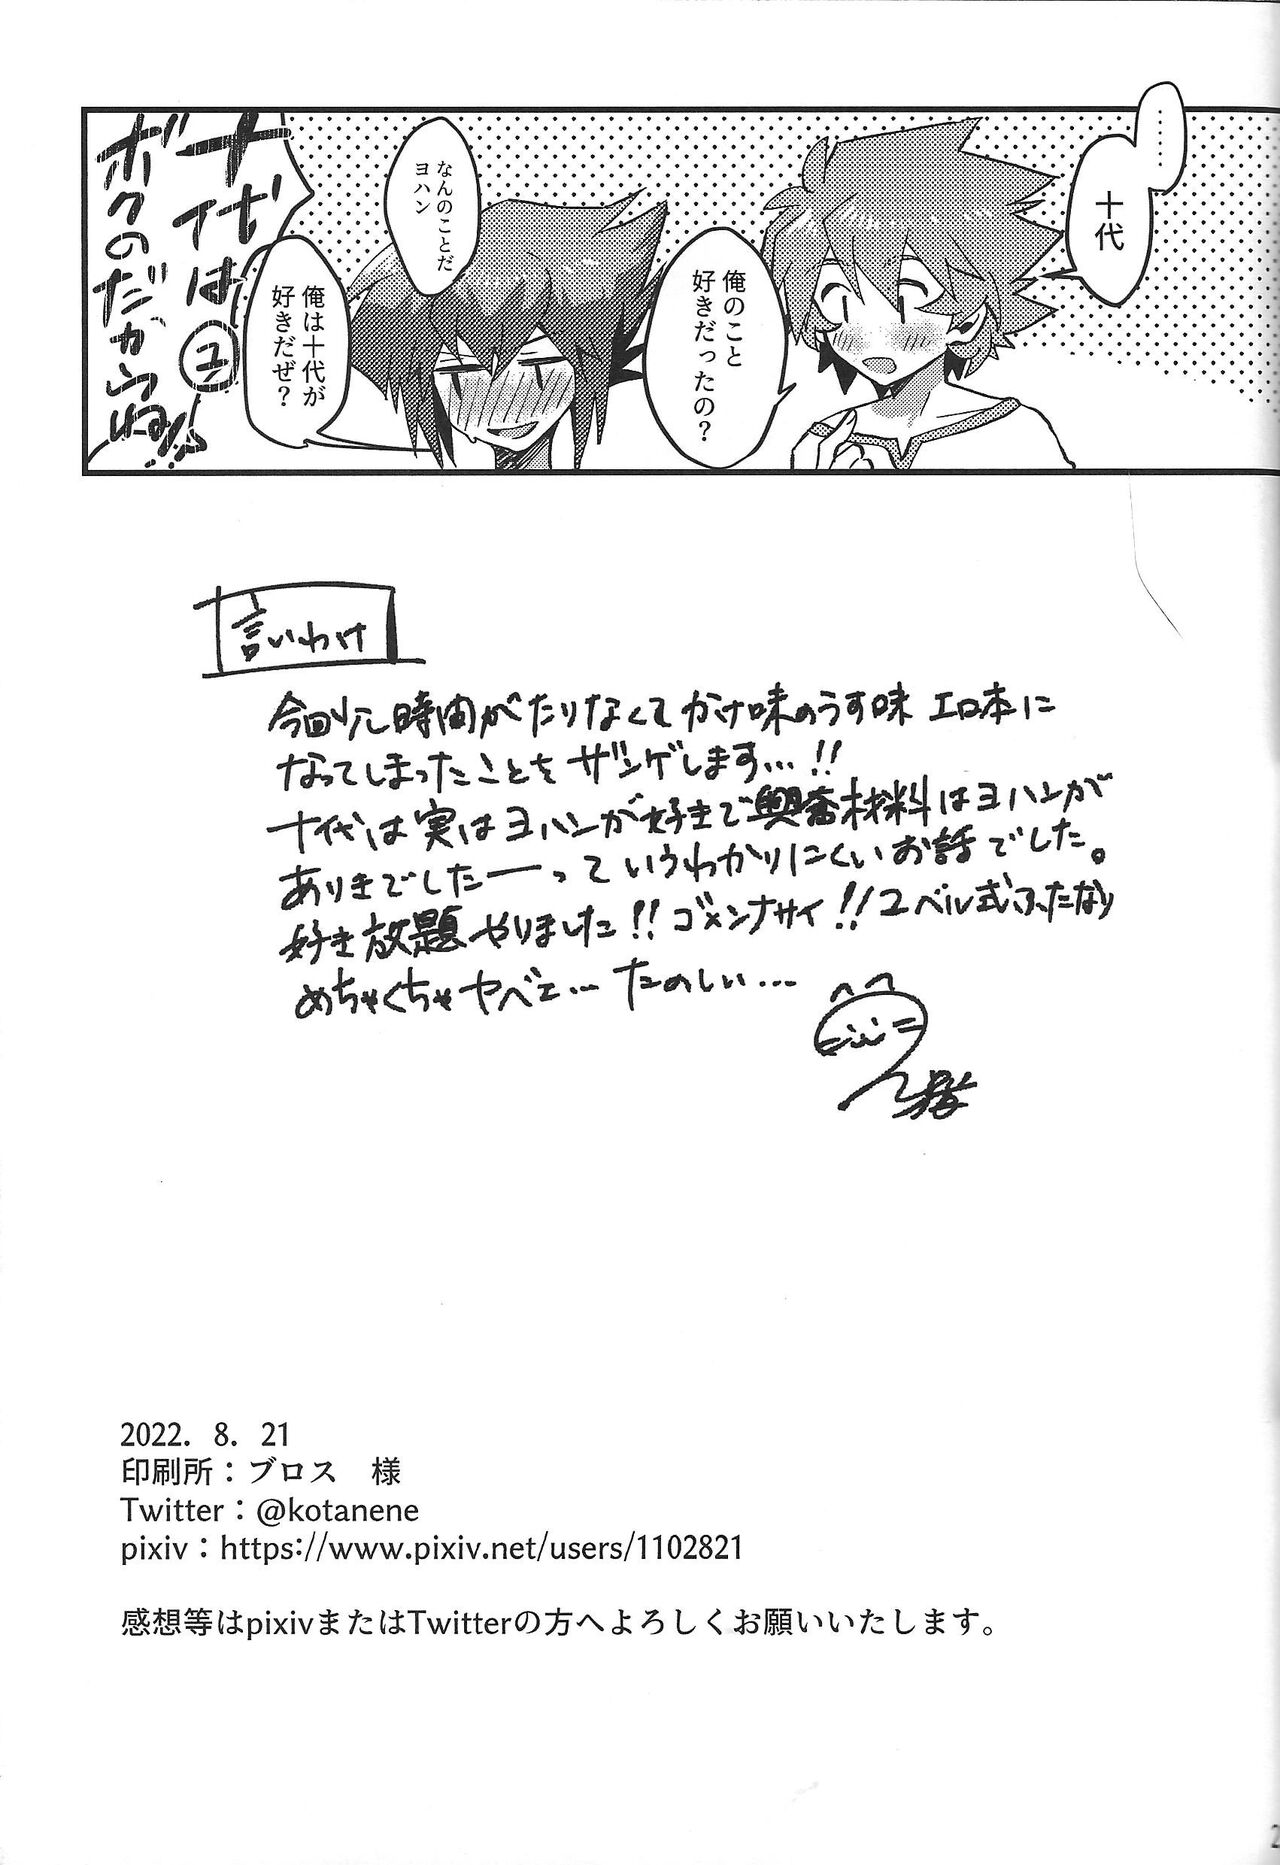 ……
十代
俺のこと
好きだったの？
なんのことだ
ヨハン
俺は十代が
好きだぜ？
十代は
ボクのだからね!!
ユ
言いわけ
今回少し時間がたりなくてかけ味のうす味エロ本に
なってしまったことをザンゲします…!!
十代は実はヨハンが好きで興奮材料はヨハンが
ありきでしたーーっていうわかりにくいお話でした。
好き放題やりました!!ゴメンナサイ!!ユベル式ふたなり
めちゃくちゃヤベェ…たのしい…
2022. 8. 21
印刷所：ブロス　様
Twitter：@kotanene
pixiv：https://www.pixiv.net/users/1102821
感想等はpixivまたはTwitterの方へよろしくお願いいたします。